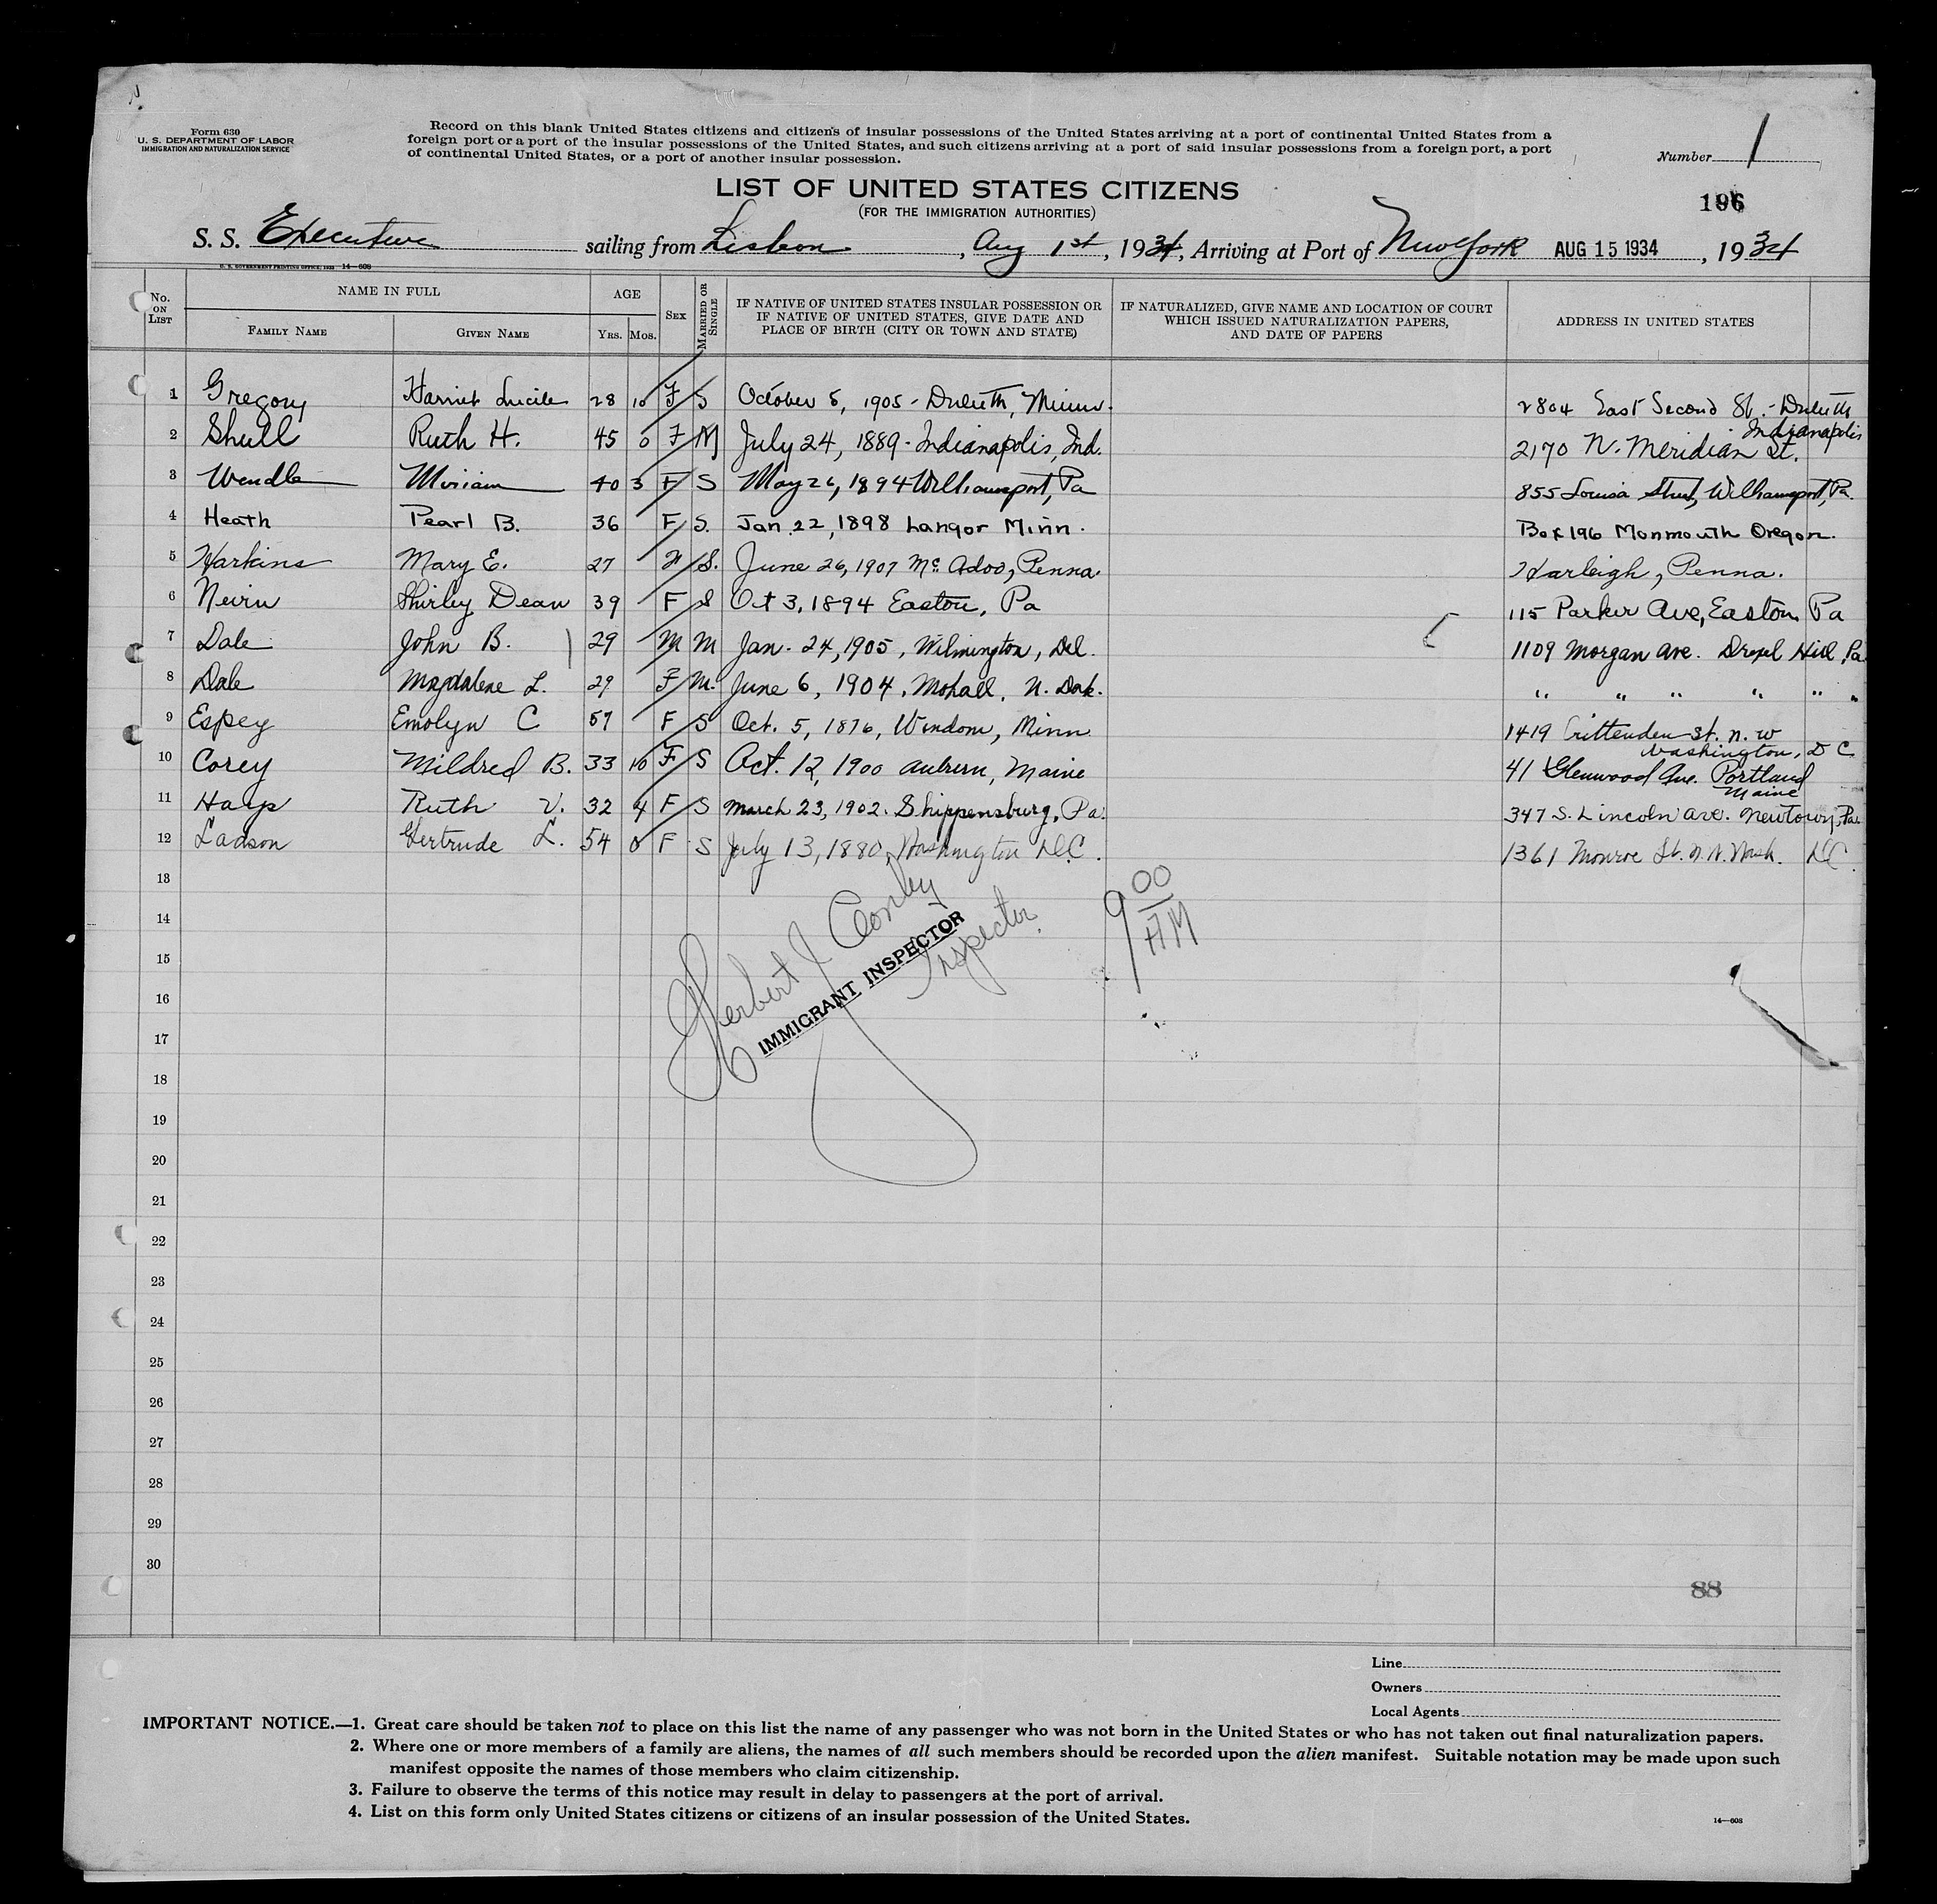 Form 630
U. S. DEPARTMENT OF LABOR
IMMIGRATION AND NATURALIZATION SERVICE
Record on this blank United States citizens and citizens of insular possessions of the United States arriving at a port of continental United States from a
foreign port or a port of the insular possessions of the United States, and such citizens arriving at a port of said insular possessions from a foreign port, a port
of continental United States, or a port of another insular possession.
Number 1
LIST OF UNITED STATES CITIZENS
(FOR THE IMMIGRATION AUTHORITIES)
196
S. S. Executive sailing from Lisbon, Aug 1st, 1934, Arriving at Port of New York AUG 15 1934, 1934
U. S. GOVERNMENT PRINTING OFFICE: 1933 14—608
No. ON LIST
NAME IN FULL
FAMILY NAME
GIVEN NAME
AGE
YRS. MOS.
SEX
MARRIED OR SINGLE
IF NATIVE OF UNITED STATES INSULAR POSSESSION OR
IF NATIVE OF UNITED STATES, GIVE DATE AND
PLACE OF BIRTH (CITY OR TOWN AND STATE)
IF NATURALIZED, GIVE NAME AND LOCATION OF COURT
WHICH ISSUED NATURALIZATION PAPERS,
AND DATE OF PAPERS
ADDRESS IN UNITED STATES
1 Gregory Harriet Lucile 28 10 F S October 5, 1905 - Duluth, Minn. 2804 East Second St. - Duluth
2 Shull Ruth H. 45 0 F M July 24, 1889 - Indianapolis, Ind. 2170 N. Meridian St. Indianapolis
3 Wendle Miriam 40 3 F S May 26, 1894 Williamsport, Pa 855 Louisa Street, Williamsport, Pa.
4 Heath Pearl B. 36 F S. Jan. 22, 1898 Langor Minn. Box 196 Monmouth Oregon.
5 Harkins Mary E. 27 F S. June 26, 1907 Mc Adoo, Penna. Harleigh, Penna.
6 Neirn Shirley Dean 39 F S Oct 3, 1894 Easton, Pa 115 Parker Ave, Easton Pa
7 Dale John B. 29 M M Jan. 24, 1905, Wilmington, Del. 1109 Morgan Ave. Drexel Hill, Pa
8 Dale Magdalene L. 29 F M. June 6, 1904, Mohall, N. Dak. " " " " " "
9 Espey Emolyn C 57 F S Oct. 5, 1876, Windom, Minn 1419 Crittenden St. N. W Washington, D C
10 Corey Mildred B. 33 10 F S Oct. 12, 1900 Auburn, Maine 41 Glenwood Ave. Portland Maine
11 Hays Ruth V. 32 4 F S March 23, 1902. Shippensburg, Pa. 347 S. Lincoln Ave. Newtown, Pa.
12 Ladson Gertrude L. 54 0 F S July 13, 1880, Washington D.C. 1361 Monroe St. N.W. Wash. DC.
13
14
15
16
17
18
19
20
21
22
23
24
25
26
27
28
29
30
Herbert J Conby
Inspector.
IMMIGRANT INSPECTOR
9 00 AM
88
Line
Owners
Local Agents
IMPORTANT NOTICE.—1. Great care should be taken not to place on this list the name of any passenger who was not born in the United States or who has not taken out final naturalization papers.
2. Where one or more members of a family are aliens, the names of all such members should be recorded upon the alien manifest. Suitable notation may be made upon such
manifest opposite the names of those members who claim citizenship.
3. Failure to observe the terms of this notice may result in delay to passengers at the port of arrival.
4. List on this form only United States citizens or citizens of an insular possession of the United States.
14—608